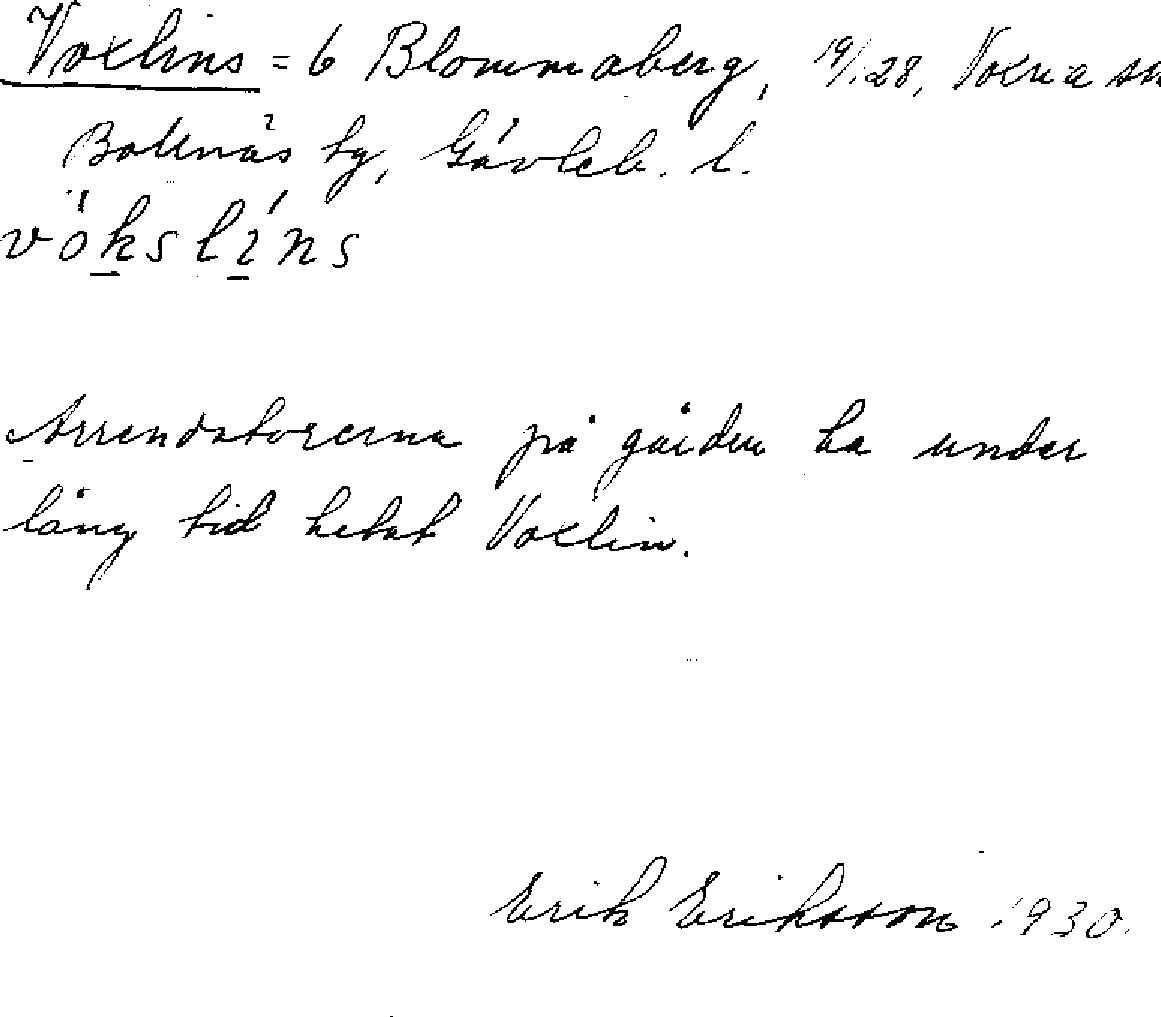 Voxlins = 6 Blommaberg, 19/128, Voxna sn
Bollnäs tg, Gävleb. l.
vókslíns
Arrendatorerna på gården ha under
lång tid hetat Voxlin.
Erik Eriksson 1930.